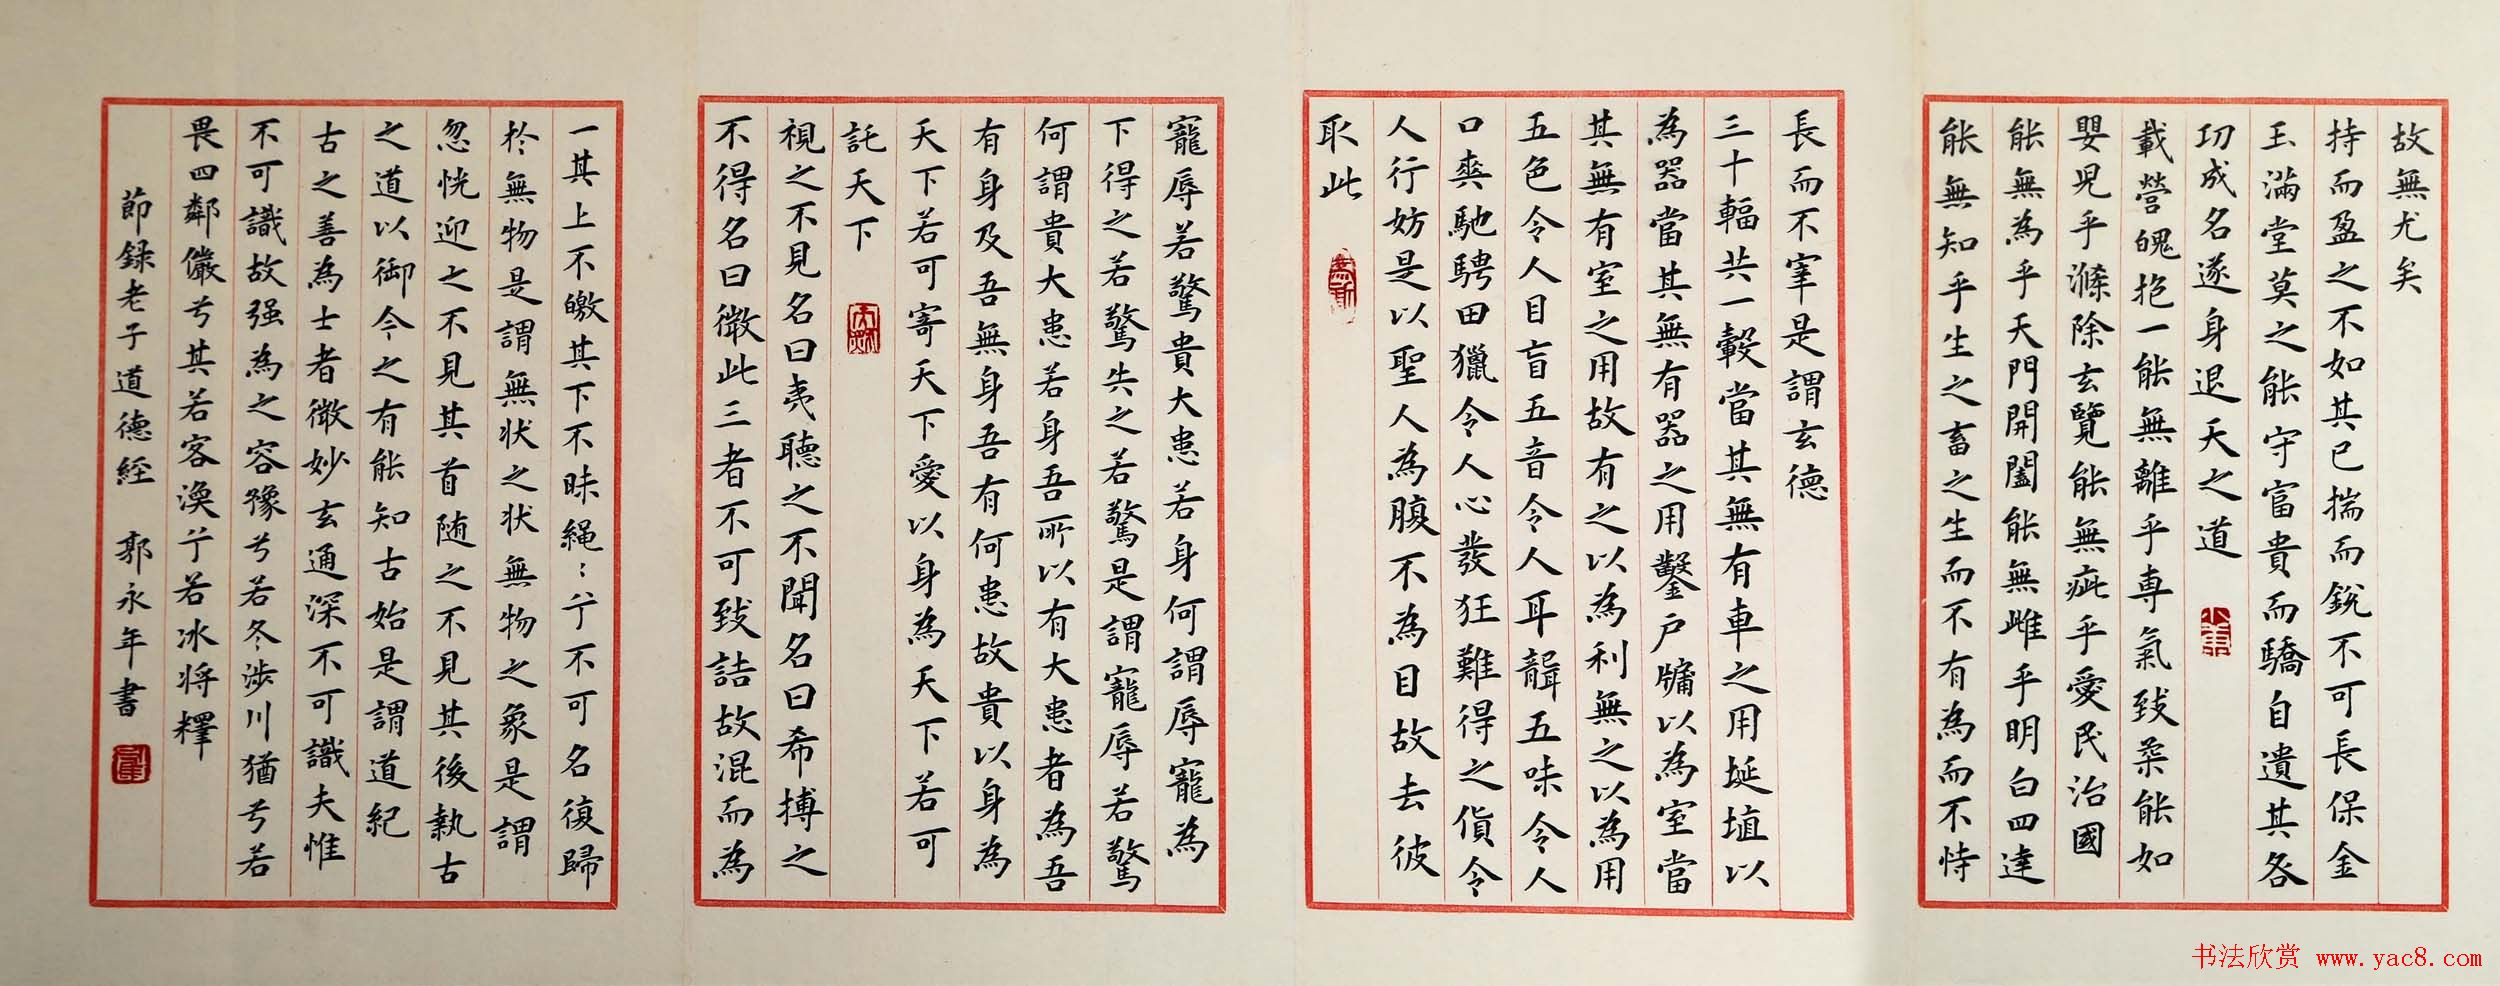 故無尤矣
持而盈之不如其已揣而銳不可長保金
玉滿堂莫之能守富貴而驕自遺其各
功成名遂身退天之道
載營魄抱一能無離乎專氣致柔能如
嬰児乎滌除玄覽能無疵乎愛民治國
能無為乎天門開闔能無雌乎明白四達
能無知乎生之畜之生而不有為而不恃
長而不宰是謂玄德
三十輻共一轂當其無有車之用埏埴以
為器當其無有器之用鑿戶牖以為室當
其無有室之用故有之以為利無之以為用
五色令人目盲五音令人耳聾五味令人
口爽馳騁田獵令人心發狂難得之貨令
人行妨是以聖人為腹不為目故去彼
取此
寵辱若驚貴大患若身何謂辱寵為
下得之若驚失之若驚是謂寵辱若驚
何謂貴大患若身吾所以有大患者為吾
有身及吾無身吾有何患故貴以身為
天下若可寄天下愛以身為天下若可
託天下
視之不見名曰夷聽之不聞名曰希搏之
不得名曰微此三者不可致詰故混而為
一其上不皦其下不昧繩〻兮不可名復歸
於無物是謂無状之状無物之象是謂
忽恍迎之不見其首随之不見其後執古
之道以御今之有能知古始是謂道紀
古之善為士者微妙玄通深不可識夫惟
不可識故强為之容豫兮若冬涉川猶兮若
畏四鄰儼兮其若客渙兮若冰将釋
節録老子道德経 郭永年書
书法欣赏 www.yac8.com